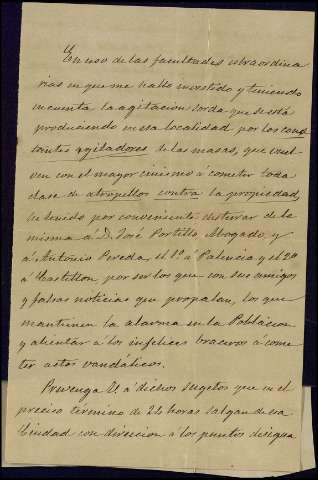 En uso de las facultades estraordina
rias en que me hallo investido y teniendo
en cuenta la agitacion sorda que se está
produciendo en esa localidad por los cons
tantes agitadores de las masas, que vuel-
ven con el mayor cinismo á cometer toda
clase de atropellos contra la propiedad,
he tenido por conveniente desterrar de la
misma á D. José Portillo Abogado y
á Antonio Pereda, el 1º á Palencia y el 2º
á Castellon, por ser los que con sus amigos
y falsas noticias que propalan, los que
mantienen la alarma en la Poblacion
y alientan á los infelices braceros á come
ter actos vandálicos.
Prevenga V. á dichos sugetos que en el
preciso término de 24 horas salgan de esa
Ciudad con direccion á los puntos designa